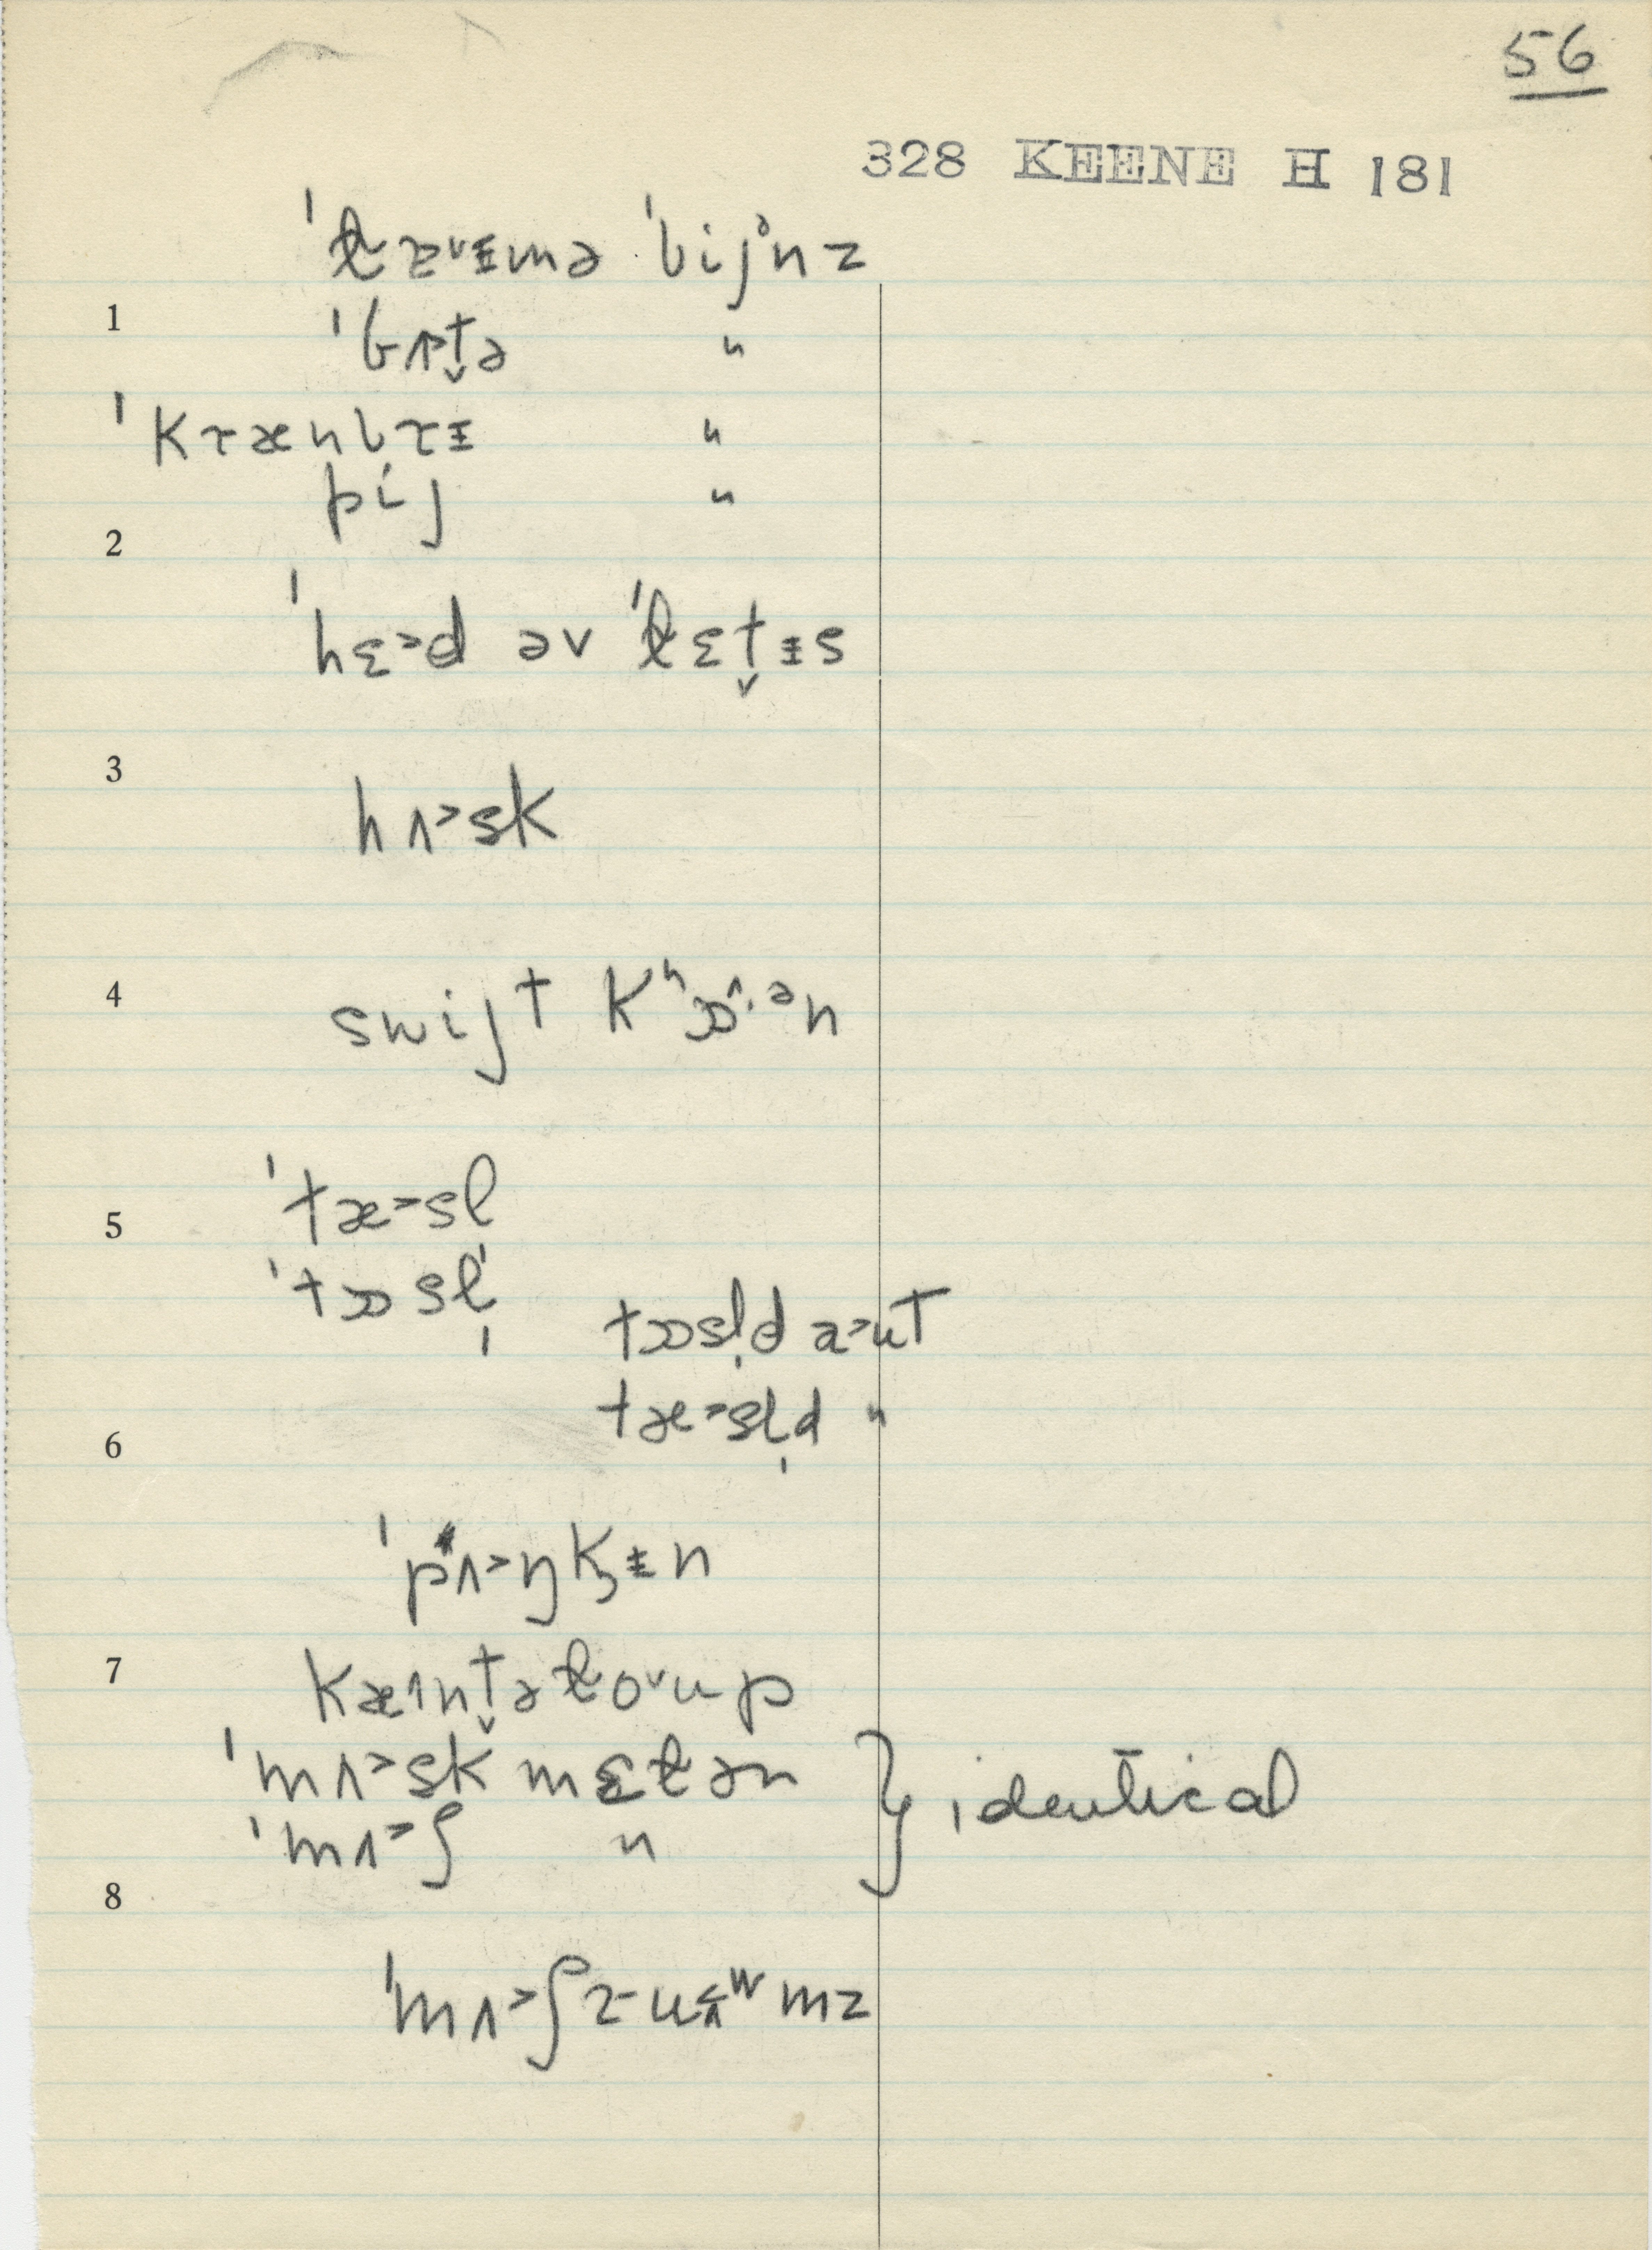 56
328 KEENE H 181
ˈɫɑ˅ɪ̵mə ˈbijᵊnz
1
ˈbʌ˃t̬ə "
ˈkrænbrɪ̵ "
pij "
2
ˈhɛ˃d əv ˈɫɛt̬ɪ̵s
3
hʌ˃sk
4
swijt kʰɒ˄·ᵊn
5
ˈtæ˃sl
ˈtɒsl̩
tɒsl̩d a˃ut
tæ˃sl̩d "
6
ˈpʌ˃ŋkɪ̵n
7
kæ˄nt̬əɫo˅up
ˈmʌ˃sk mɛɫən
ˈmʌ˃ʃ " } identical
8
ˈmʌ˃ʃruʷmz